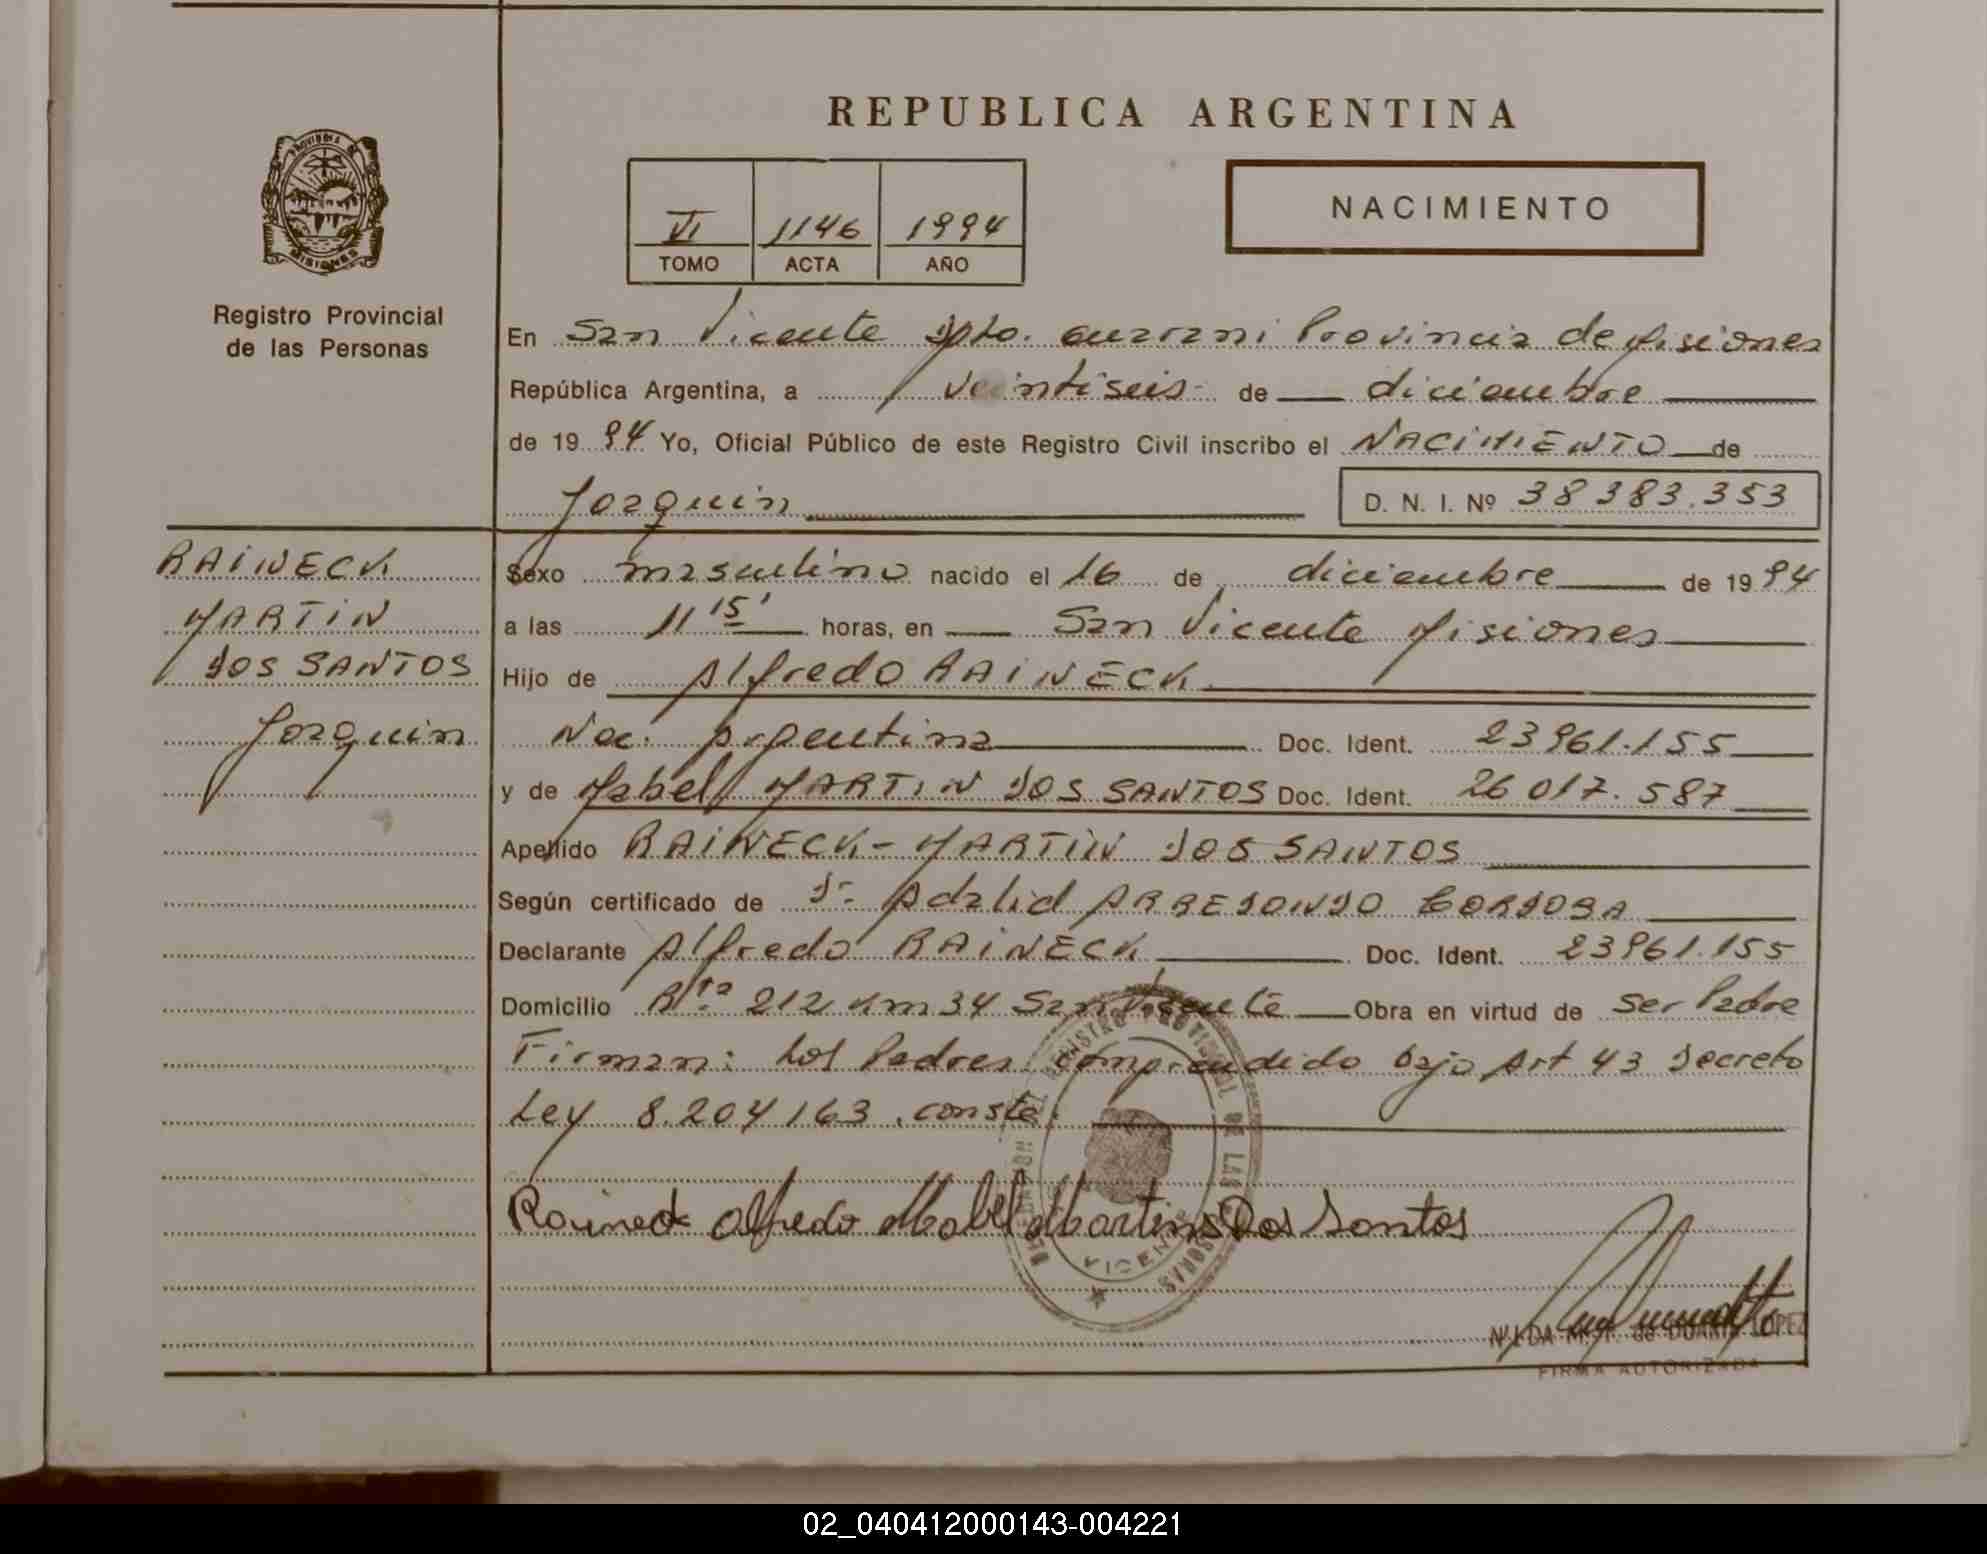 REPUBLICA ARGENTINA
PROVINCIA DE
MISIONES
Registro Provincial
de las Personas
VI 1146 1994
TOMO ACTA AÑO
NACIMIENTO
En San Vicente Dpto. Guarani Provincia de Misiones
República Argentina, a veintiseis de diciembre
de 1994 Yo, Oficial Público de este Registro Civil inscribo el NACIMIENTO de
Joaquin D. N. I. Nº 38383.353
RAINECK
MARTIN
DOS SANTOS
Joaquin
Sexo masculino nacido el 16 de diciembre de 1994
a las 11 15' horas, en San Vicente Misiones
Hijo de Alfredo RAINECK
Nac. Argentina Doc. Ident. 23961.155
y de Mabel MARTIN DOS SANTOS Doc. Ident. 26017.587
Apellido RAINECK-MARTIN DOS SANTOS
Según certificado de Dr. Adalid ARREDONDO CORDOBA
Declarante Alfredo RAINECK Doc. Ident. 23961.155
Domicilio Rta 212 Km 34 San Vicente Obra en virtud de Ser Padre
Firman: Los Padres comprendido bajo Art 43 Decreto
Ley 8.204/63. conste.
Raineck Alfredo Mabel Martins Dos Santos
DELEGACION DEL REGISTRO PROVINCIAL DE LAS PERSONAS
VICENTE
DUARTE LOPEZ
FIRMA AUTORIZADA
02_040412000143-004221